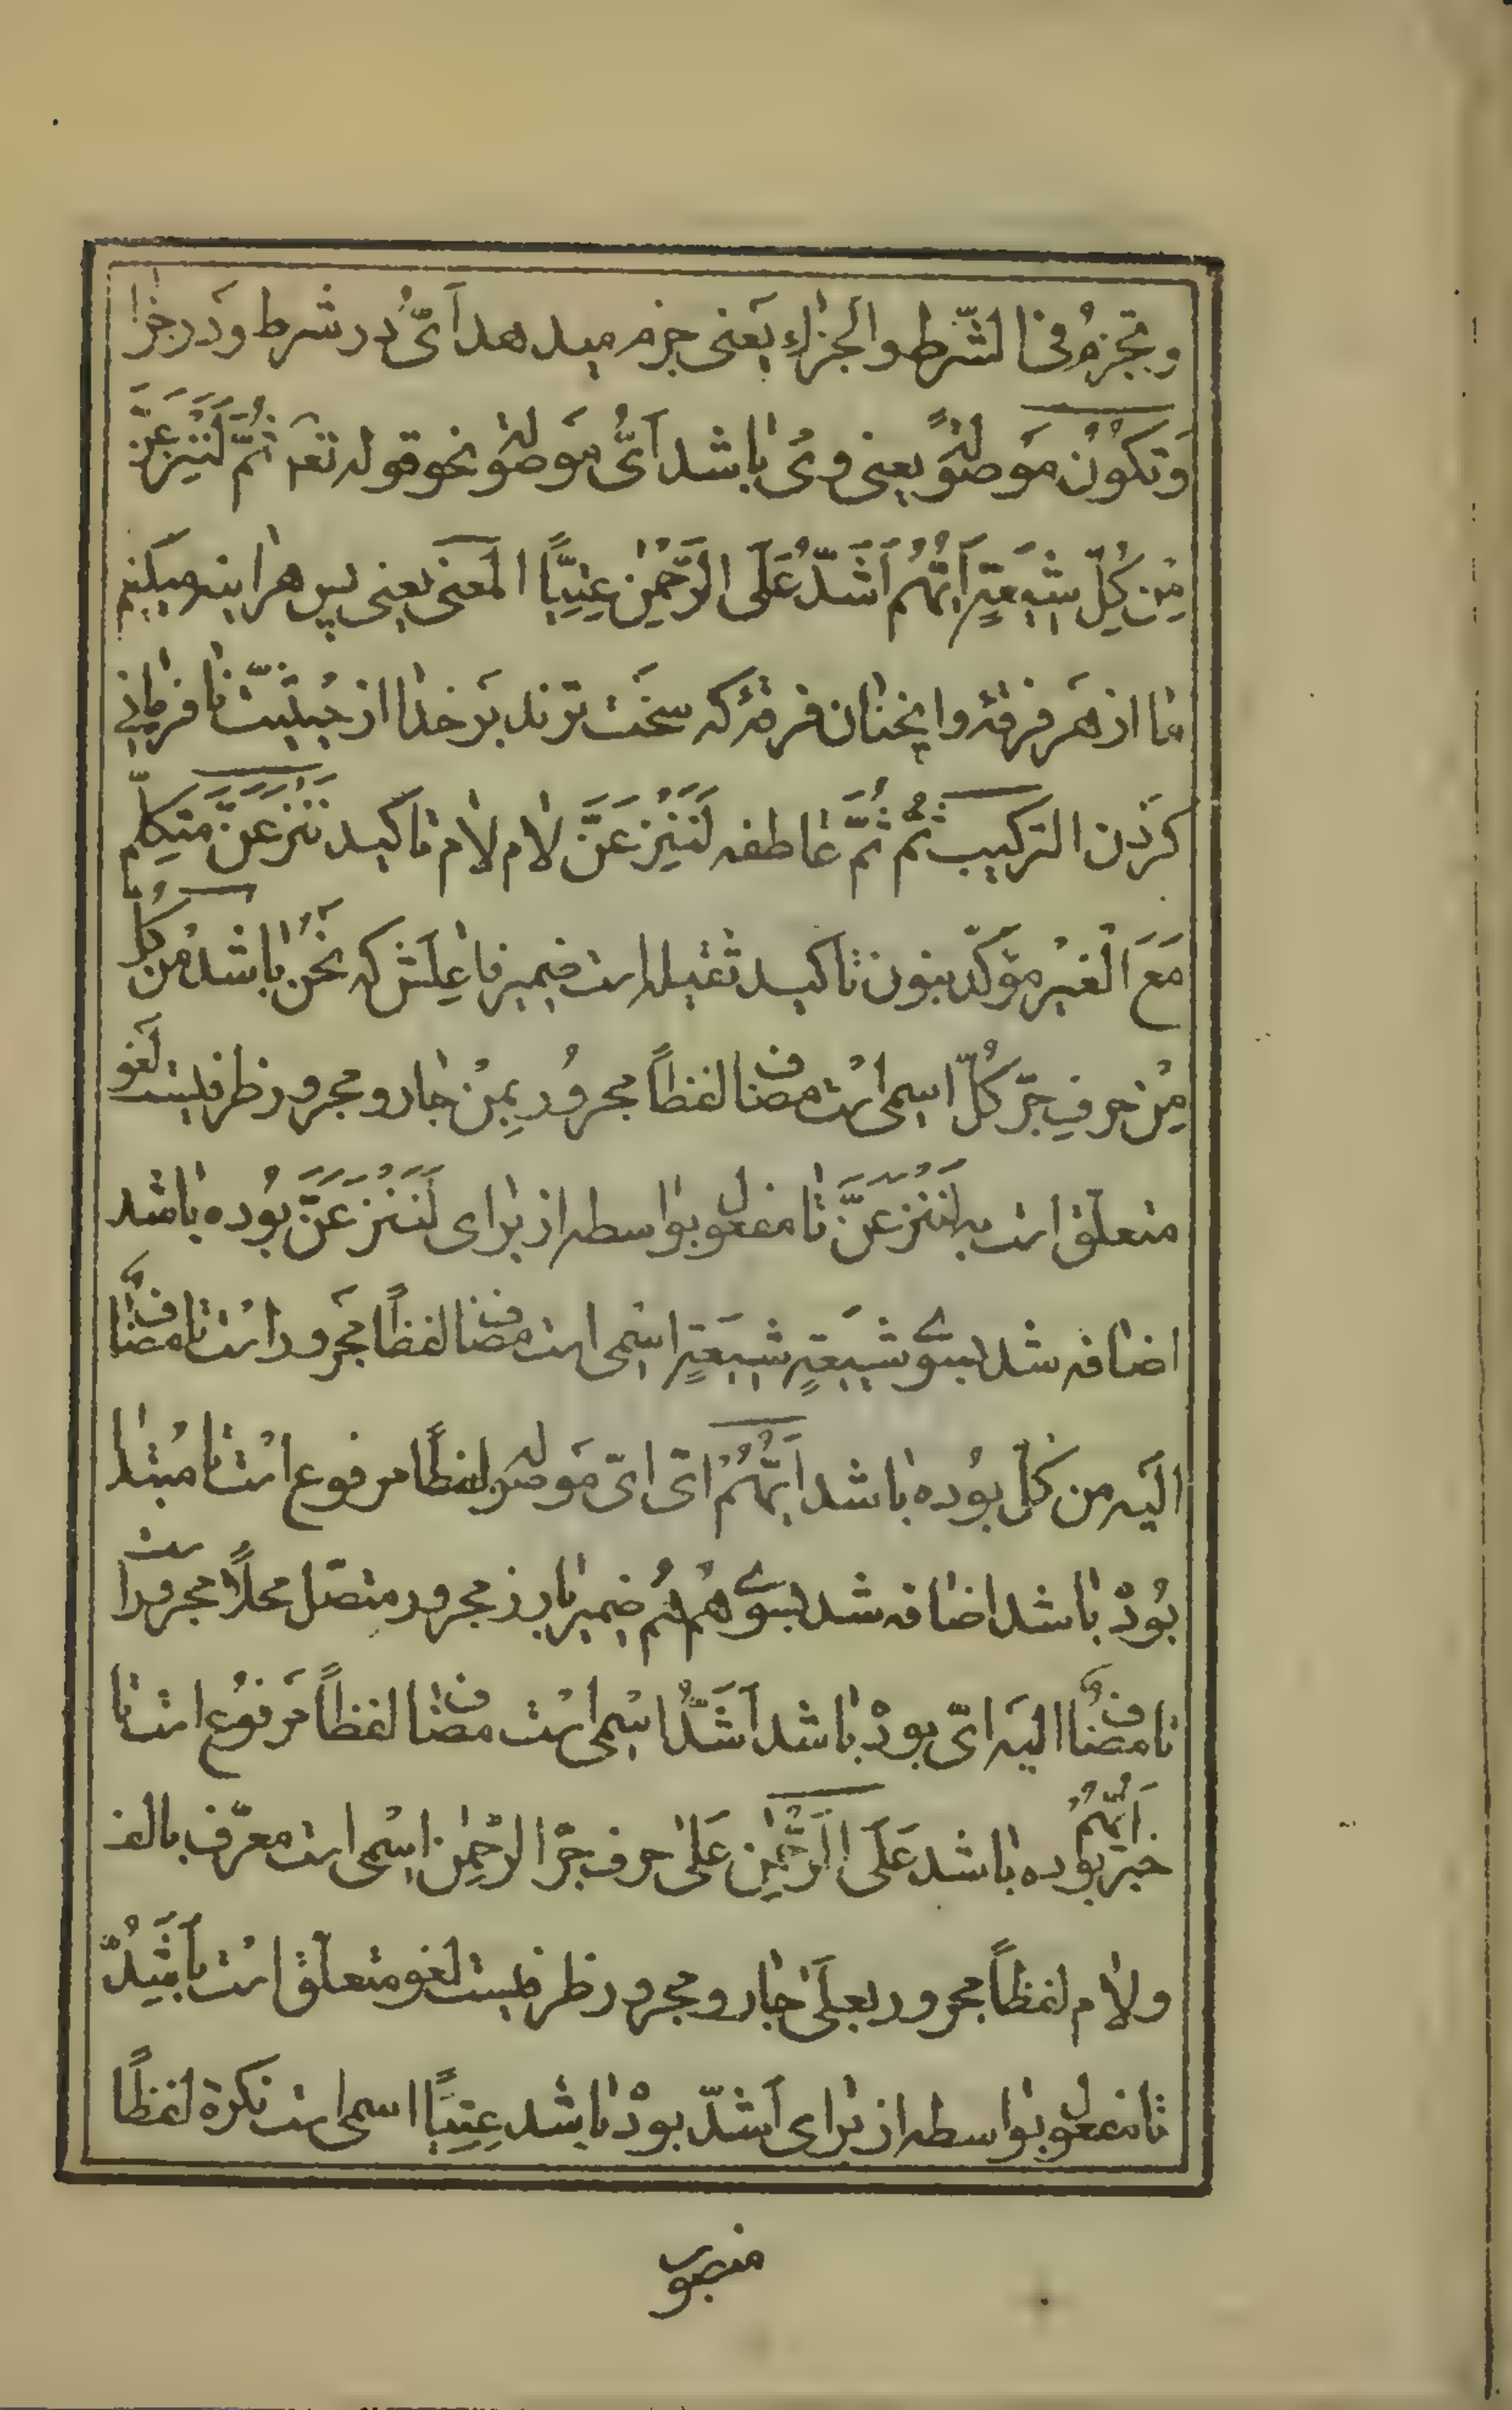 وَتَجْزِمُ فی الشّرط والجزاءِ یَعنی جزم میدهد اَیُّ در شرط و دَر جزا
وَتَکُوْنُ مَوصُولَةً یعنی و می باشد اَیُّ مَوصُوله نحو قوله تعَ ثُمَّ لَنَنْزِعَنَّ
مِن کُلِّ شِیعَةٍ اَیُّهُم اَشَدُّ عَلَی الرَّحْمٰنِ عِتِیًّا المَعنَی یَعنی پس هر اینه میکنیم
ما از هَر فرقهٔ و اینچنان فرقهٔ که سخَت ترند بَر خدا از حیثیّت نافرمانی
کرَدن الترکیب ثُمَّ ثُمَّ عاطفه لَنَنْزِعَنَّ لام لام تاکید نَنْزِعَنَّ متکلّم
مَعَ الْغَیْر مؤکّد بنون تاکید ثقیله است ضمیر فاعِلَش که نَحْنُ باشد مِنْ کُلِّ
مِنْ حرفِ جَرّ کُلّ اسمی است مضاف لفظاً مجرُور بِمِنْ جار و مجرور ظرفیست لَغو
متعلّق است به لَنَنْزِعَنَّ تا مفعول بواسطه از برای لَنَنْزِعَنَّ بُوده باشد
اضافه شد بسوی شیَعةٍ شِیعَةٍ اسْمی است مضاف لفظاً مجَرور است تا مضافٌ
اَلَیه من کُلّ بُوده باشد اَیُّهُمْ ایّ ایّ مَوصُوله لفظاً مرفوع است تا مُبتدا
بُودْ باشد اضافه شد بسوی هُمْ هُم ضمیر بارز مجرور متصّل محلاً مجرور است
تا مضافٌ الیَه ایّ بودْ باشد اَشَدُّ اسْمی است مضاف لفظاً مَرفوُع است تا
خبر اَیُّهُمْ بوُده باشد عَلَی الرَّحْمٰنِ عَلیٰ حرف جرّ الرحْمٰن اسْمی است معرّف بالف
ولام لفظاً مجرور بعلَی جار و مجرور ظرفیست لغو متعلّق است باَشَدُّ
تا مفعول بواسطه از برای اَشدّ بودْ باشد عِتِیًّا اسمی است نکرة لفظاً
منصوب